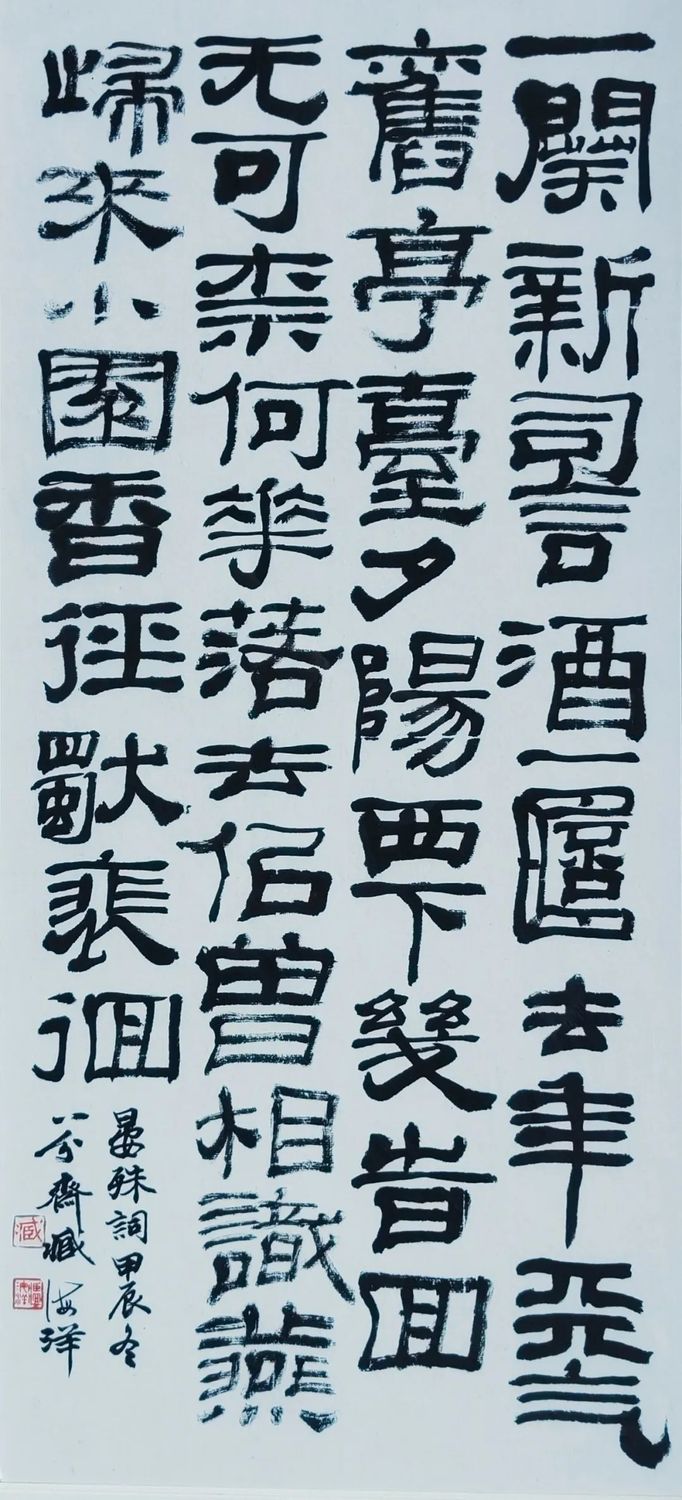 一闋新詞酒一杯去年天气
舊亭臺夕陽西下幾旹回
无可柰何花落去佀曾相識燕
歸來小園香徑獨裴徊
晏殊詞甲辰冬
八分齋臧海洋
臧